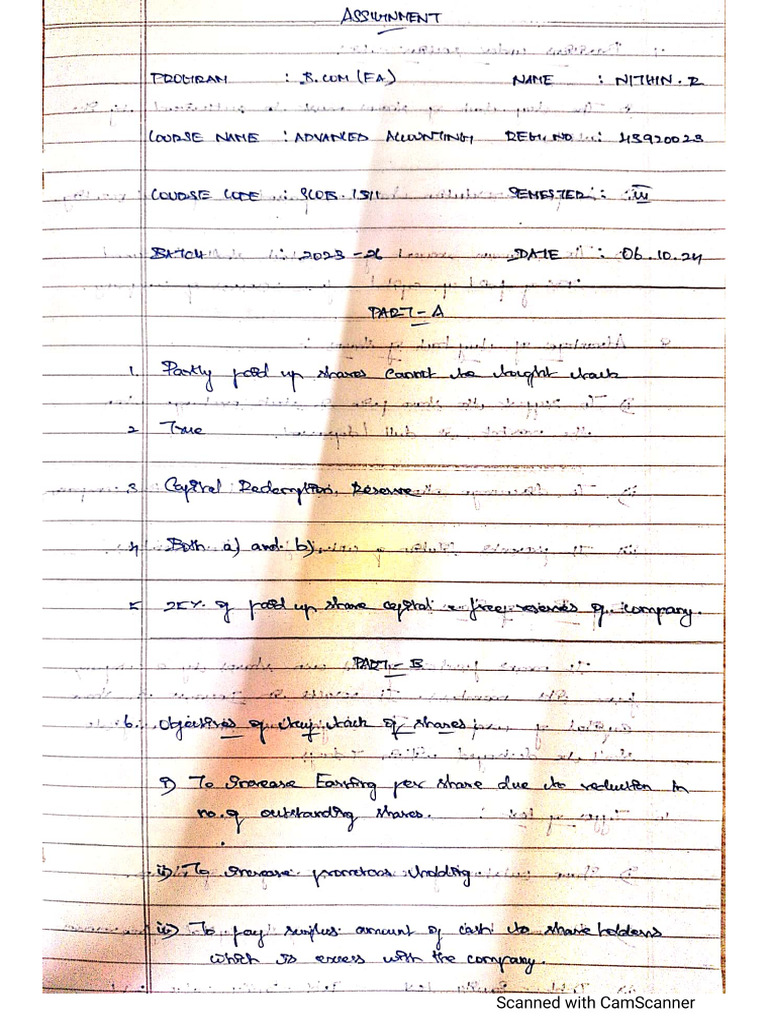 ASSIGNMENT
PROGRAM : B.COM (FA) NAME : NITHIN. R
COURSE NAME : ADVANCED ACCOUNTING REG. NO : 43920023
COURSE CODE : SEMESTER : III
BATCH : 2023-26 DATE : 06.10.24
PART-A
1. Partly paid up shares cannot be bought back
2 True
3. Capital Redemption Reserve
4. Both a) and b)
5. 25% of paid up share capital & free reserves of company.
PART-B
6. Objectives of buy back of shares
i) To increase Earning per share due to reduction in
no. of outstanding shares.
ii) To increase promoters holding
iii) To pay surplus amount of cash to share holders
which is excess with the company.
Scanned with CamScanner